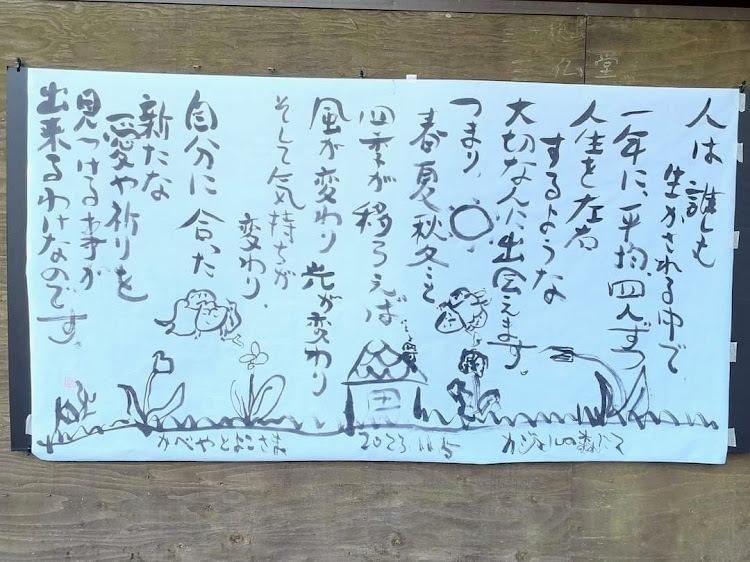 人は誰しも
生かされる中で
一年に、平均、四人ずつ
人生を左右
するような
大切な人に出会えます。
つまり、○
春夏秋冬と
四季が移ろえば
風が変わり 光が変わり
そして気持ちが
変わり、
自分に合った
新たな
愛や祈りを
見つける事が
出来るわけなのです。